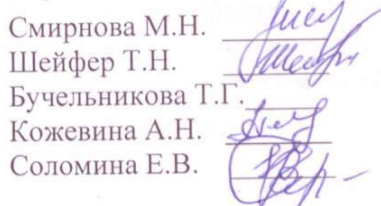 Смирнова М.Н.
Шейфер Т.Н.
Бучельникова Т.Г.
Кожевина А.Н.
Соломина Е.В.